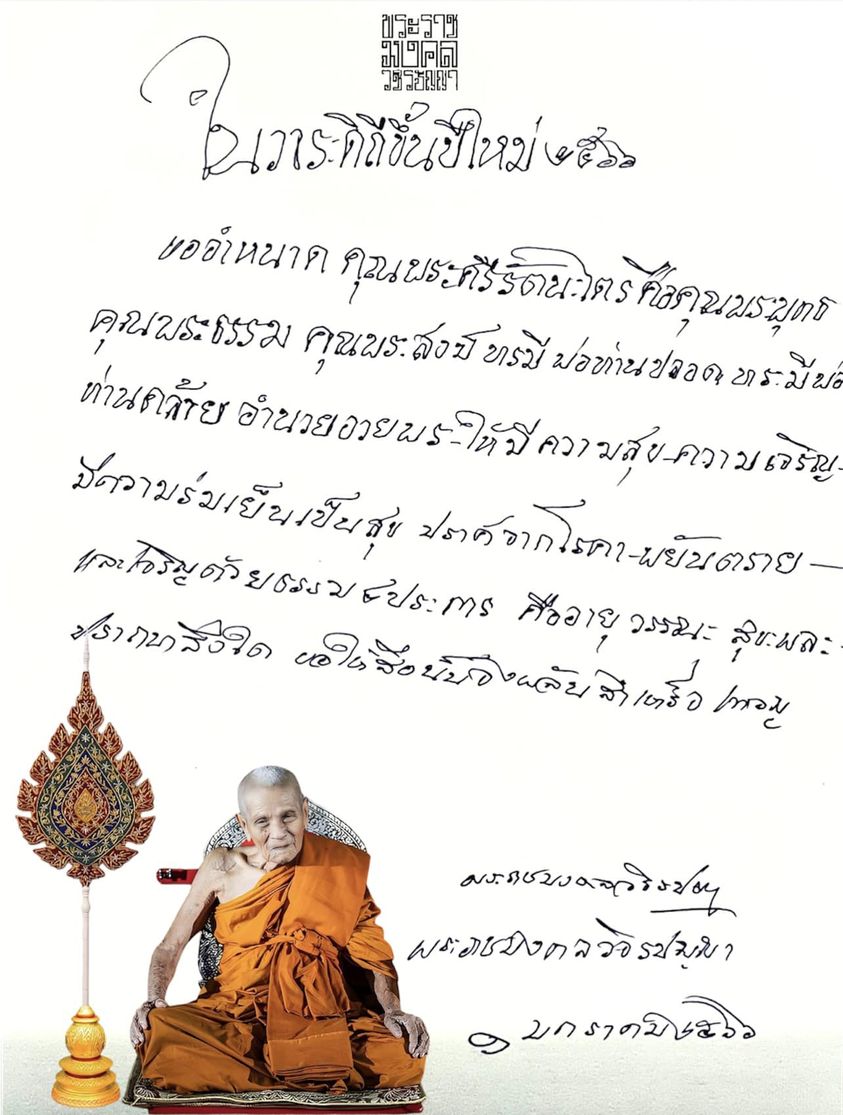 พระราช
มงคล
วชรธัญญา
ในวาระดิถีขึ้นปีใหม่ ๒๕๖๖
ขออำหนาด คุณพระศรีรัตนะไตร คือคุณพระพุทธ
คุณพระธรรม คุณพระสงฆ์ พ่อท่านปลอด พ่อ
ท่านคล้าย อำนวยอวยพระให้มี ความสุข-ความเจริญ-
มีความร่มเย็นเป็นสุข ปราศจากโรคา-พยันตราย —
และเจริญด้วยธรรม ๔ ประการ คืออายุ วรรณะ สุขะ พละ -
ปรารถนาสิ่งใด ขอให้สิ่งนั้นจงพลันสำเหร็จ เทอญ
๑ มกราคม ๒๕๖๖